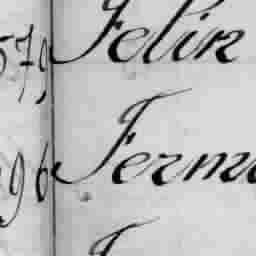 579, Felix
96 Ferm